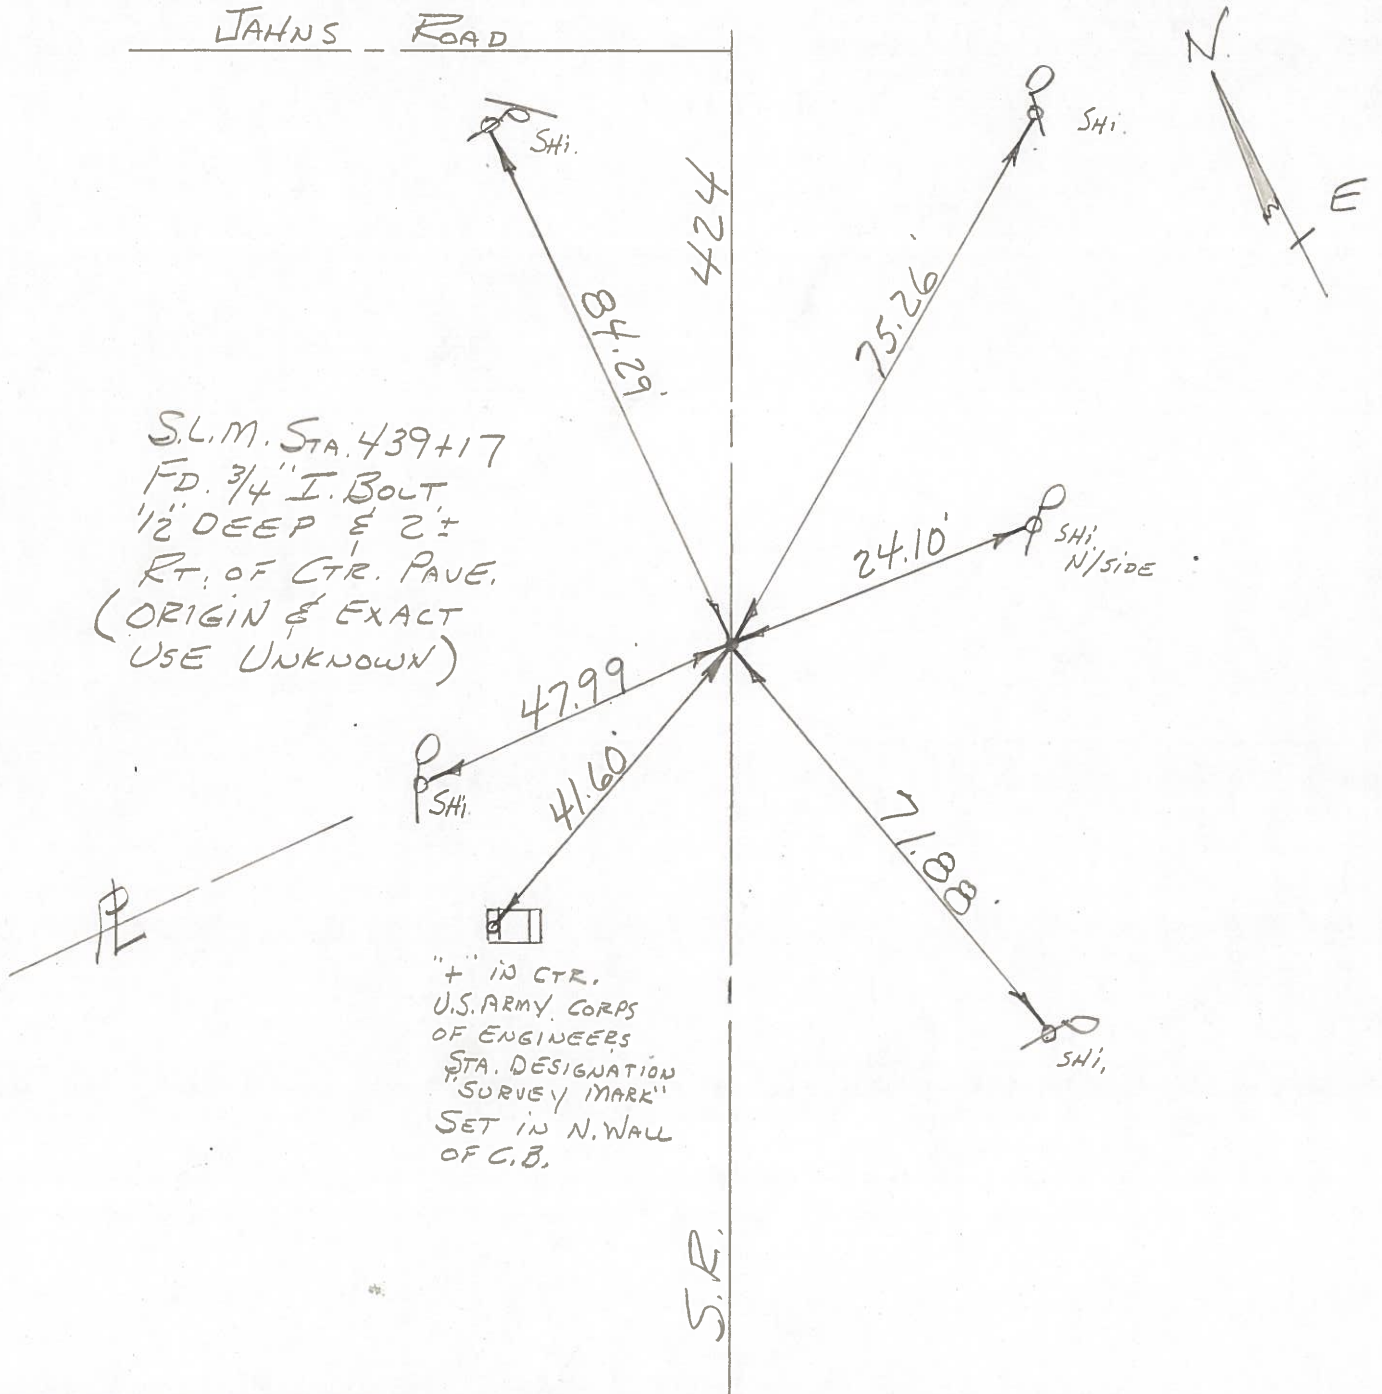 JAHNS - ROAD
N.
E
SHi.
SHi.
424
84.29'
75.26'
S.L.M. STA. 439+17
FD. 3/4" I. BOLT
1/2" DEEP & 2'±
RT. OF CTR. PAVE.
(ORIGIN & EXACT
USE UNKNOWN)
24.10'
SHi.
N/SIDE
47.99
SHi.
41.60'
71.88'
PL
SHi.
"+" IN CTR.
U.S. ARMY CORPS
OF ENGINEERS
STA. DESIGNATION
"SURVEY MARK"
SET IN N. WALL
OF C.B.
S.R.